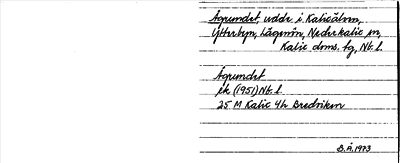 Ågrundet, uddr. i Kalixälven,
Ytterbyn, Lägenön, Nederkalix sn,
Kalix doms. tg, Nb. l.
Ågrundet
ek (1951) Nb. l
25 M Kalix 4h Bredviken
B.Å. 1973